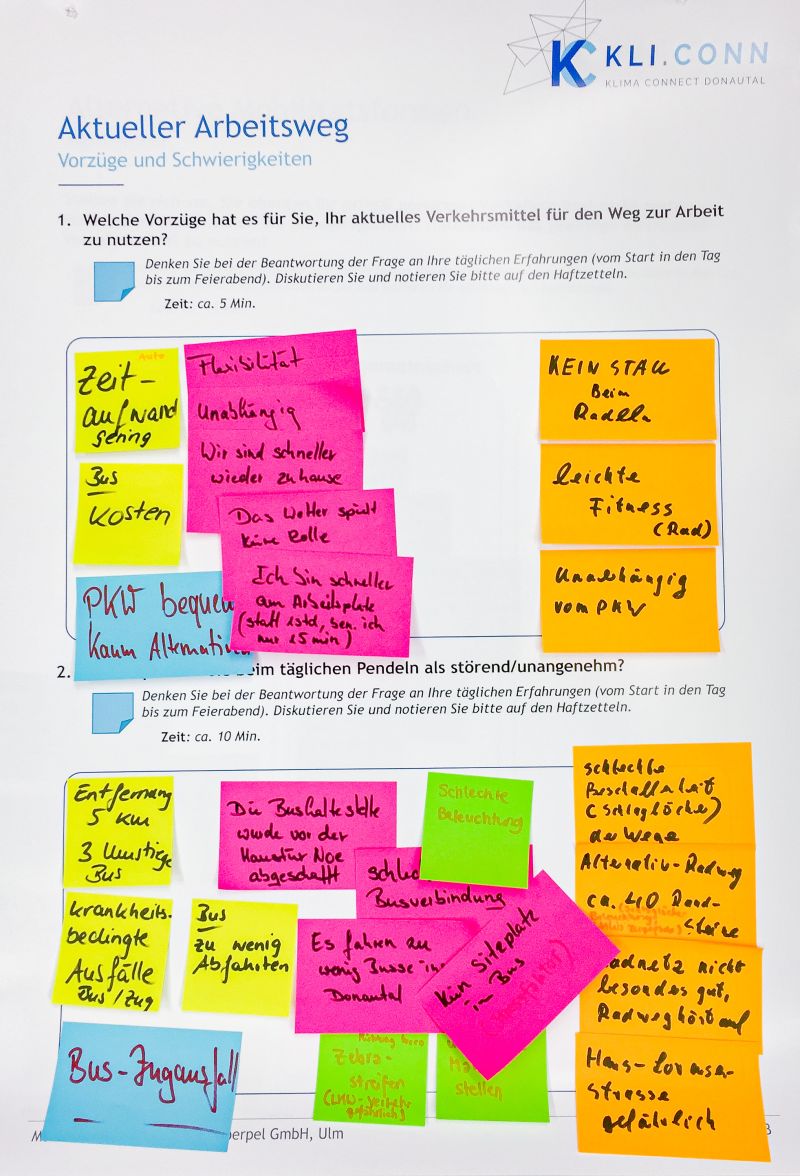 KC KLI.CONN
KLIMA CONNECT DONAUTAL
Aktueller Arbeitsweg
Vorzüge und Schwierigkeiten
1. Welche Vorzüge hat es für Sie, Ihr aktuelles Verkehrsmittel für den Weg zur Arbeit
zu nutzen?
Denken Sie bei der Beantwortung der Frage an Ihre täglichen Erfahrungen (vom Start in den Tag
bis zum Feierabend). Diskutieren Sie und notieren Sie bitte auf den Haftzetteln.
Zeit: ca. 5 Min.
Auto
Zeit-
aufwand
gering
Bus
Kosten
PKW bequem
Kaum Alternativen
Flexibilität
Unabhängig
Wir sind schneller
wieder zuhause
Das Wetter spielt
keine Rolle
Ich bin schneller
am Arbeitsplatz
(statt 1std, ben. ich
nur 15min)
KEIN STAU
Beim
Radeln
leichte
Fitness
(Rad)
Unabhängig
vom PKW
2.
beim täglichen Pendeln als störend/unangenehm?
Denken Sie bei der Beantwortung der Frage an Ihre täglichen Erfahrungen (vom Start in den Tag
bis zum Feierabend). Diskutieren Sie und notieren Sie bitte auf den Haftzetteln.
Zeit: ca. 10 Min.
Entfernung
5 km
3 Umstiege
Bus
Krankheits-
bedingte
Ausfälle
Bus/Zug
Bus
zu wenig
Abfahrten
Bus-Zugausfall
Die Bushaltestelle
wurde vor der
Haustür Noe
abgeschafft
Busverbindung
Es fahren zu
wenig Busse im
Donautal
Kein Sitzplatz
im Bus
Schlechte
Beleuchtung
Zebra-
streifen
(LKW-Verkehr
gefährlich)
stellen
schlechte
Beschaffenheit
(Schlaglöcher)
der Wege
Alternativ-Radweg
ca. 40 Rand-
steine
Radnetz nicht
besonders gut,
Radweg hört auf
Hans-Lorenser-
strasse
gefährlich
GmbH, Ulm
3